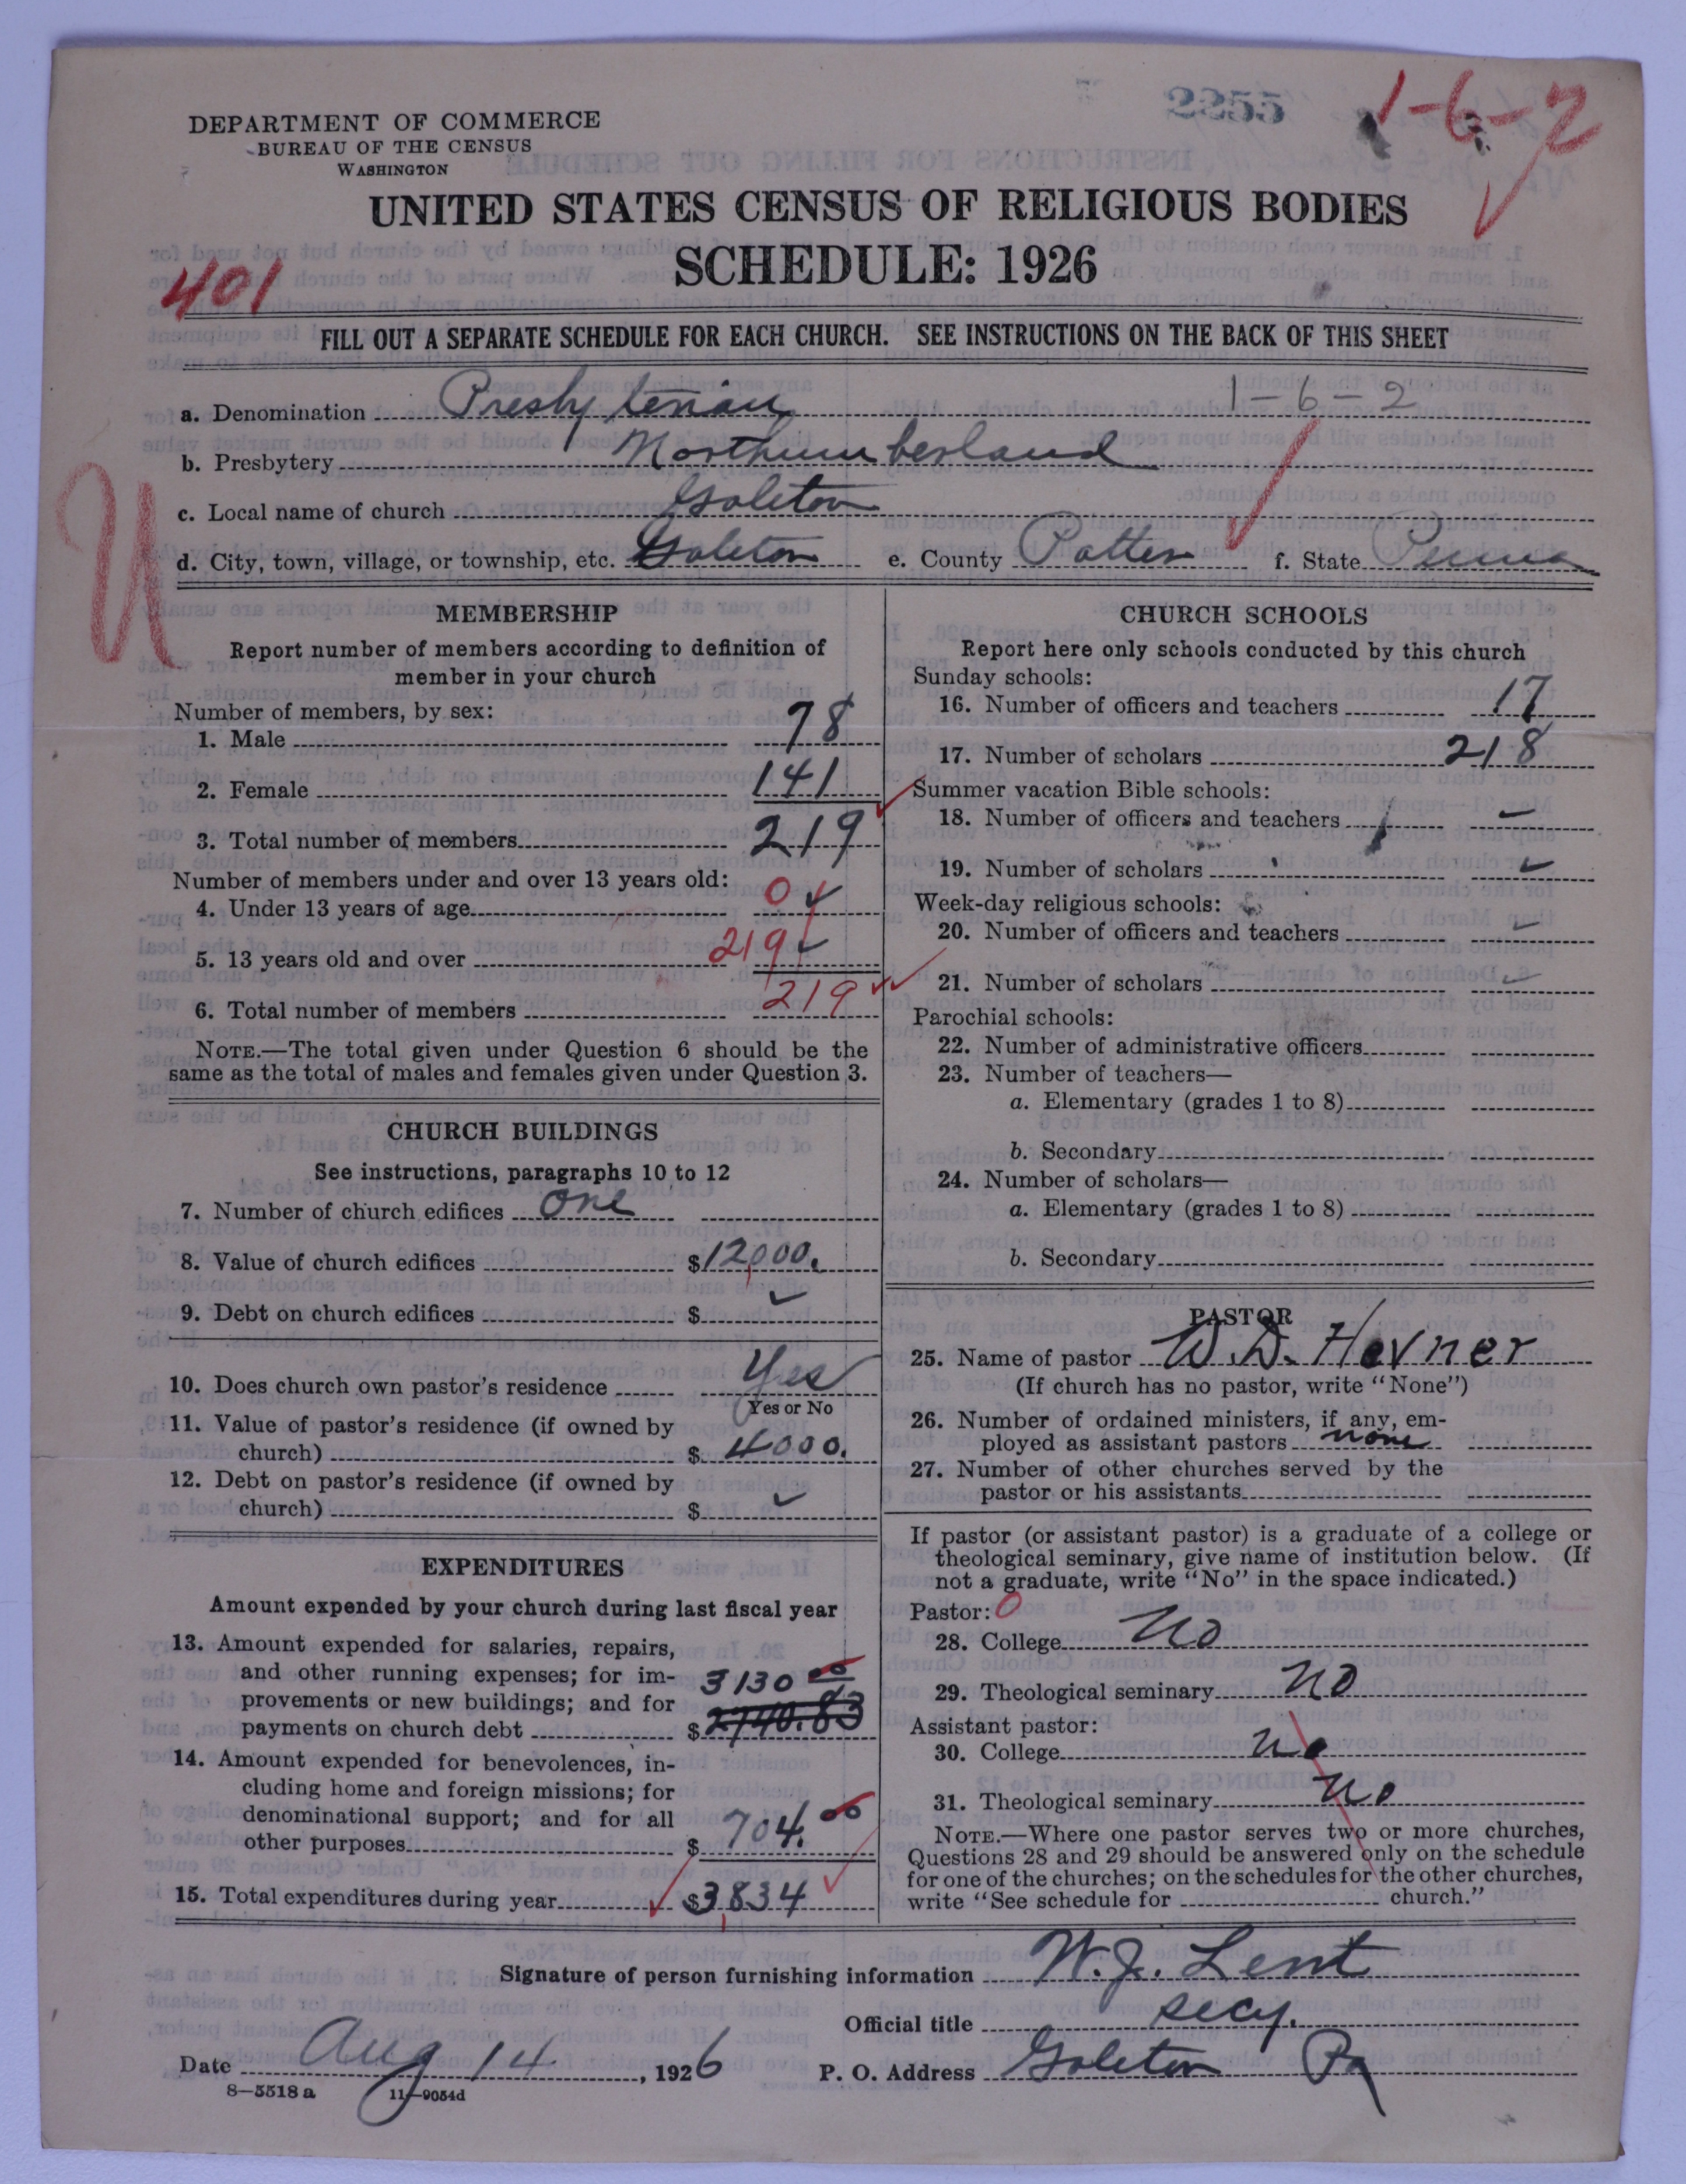 2255
1-6-2
DEPARTMENT OF COMMERCE
BUREAU OF THE CENSUS
WASHINGTON
UNITED STATES CENSUS OF RELIGIOUS BODIES
SCHEDULE: 1926
401
FILL OUT A SEPARATE SCHEDULE FOR EACH CHURCH. SEE INSTRUCTIONS ON THE BACK OF THIS SHEET
a. Denomination Presbyterian 1-6-2
b. Presbytery Northumberland
c. Local name of church Galeton
d. City, town, village, or township, etc. Galeton e. County Potter f. State Penna
U
MEMBERSHIP
Report number of members according to definition of
member in your church
Number of members, by sex:
1. Male 78
2. Female 141
3. Total number of members 219
Number of members under and over 13 years old:
4. Under 13 years of age 0
5. 13 years old and over 219
6. Total number of members 219
NOTE.—The total given under Question 6 should be the
same as the total of males and females given under Question 3.
CHURCH BUILDINGS
See instructions, paragraphs 10 to 12
7. Number of church edifices one
8. Value of church edifices $12,000.
9. Debt on church edifices $ ✓
10. Does church own pastor's residence Yes
Yes or No
11. Value of pastor's residence (if owned by
church) $ 4000.
12. Debt on pastor's residence (if owned by
church) $ ✓
EXPENDITURES
Amount expended by your church during last fiscal year
13. Amount expended for salaries, repairs,
and other running expenses; for im-
provements or new buildings; and for 3130 00
payments on church debt $ 2740.83
14. Amount expended for benevolences, in-
cluding home and foreign missions; for
denominational support; and for all
other purposes $ 704.00
15. Total expenditures during year $3,834
CHURCH SCHOOLS
Report here only schools conducted by this church
Sunday schools:
16. Number of officers and teachers 17
17. Number of scholars 218
Summer vacation Bible schools:
18. Number of officers and teachers –
19. Number of scholars ✓
Week-day religious schools:
20. Number of officers and teachers ✓
21. Number of scholars ✓
Parochial schools:
22. Number of administrative officers
23. Number of teachers—
a. Elementary (grades 1 to 8)
b. Secondary
24. Number of scholars—
a. Elementary (grades 1 to 8)
b. Secondary
PASTOR
25. Name of pastor W. D. Hevner
(If church has no pastor, write "None")
26. Number of ordained ministers, if any, em-
ployed as assistant pastors none
27. Number of other churches served by the
pastor or his assistants
If pastor (or assistant pastor) is a graduate of a college or
theological seminary, give name of institution below. (If
not a graduate, write "No" in the space indicated.)
Pastor: 0
28. College No
29. Theological seminary No
Assistant pastor:
30. College No
31. Theological seminary No
NOTE.—Where one pastor serves two or more churches,
Questions 28 and 29 should be answered only on the schedule
for one of the churches; on the schedules for the other churches,
write "See schedule for church."
Signature of person furnishing information W. J. Lent
Official title secy.
Date Aug 14, 1926 P. O. Address Galeton Pa
8-5518 a 11-9054d